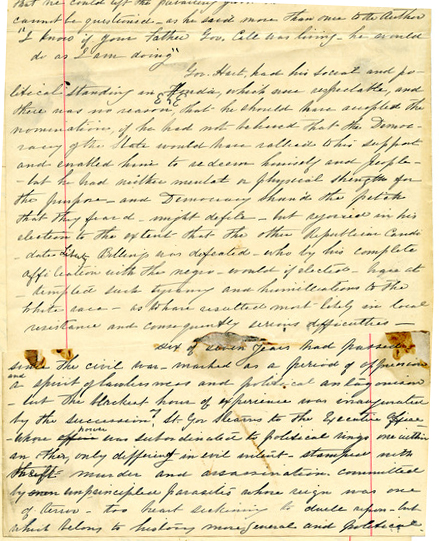 that he could lift the prevailing
cannot be questioned - as he said more than once to the Author
"I know if your Father Gov. Call was living - he would
do as I am doing"
Gov. Hart, had his social and po-
litical standing in Florida, which were respectable, and
there was no reason, that he should have accepted the
nomination, if he had not believed that the Democ-
racy of the State would have rallied to his support
and enabled him to redeem himself and people -
but he had neither mental or physical strength for
the purpose - and Democracy shun'd the pitch
that they fear'd - might defile - but rejoiced in his
election to the extent that the other Republican Candi
date Billing was defeated - who by his complete
affiliation with the negro - would if elected - have at-
tempted such tyranny and humiliations to the
white race - as to have resulted most likely in local
resistance and consequently serious difficulties -
Six or seven years had passed
since the civil war - marked as a period of oppression
and a spirit of lawlessness and political antagonism
- but the blackest hour of experience was inaugurated
by the succession of Lt. Gov Stearns to the Executive Office -
whose power was subordinated to political rings one within
an other, only differing in evil intent - stamped with
theft murder and assassination committed
by unprincipled parasites whose reign was one
of terror - too heart sickening to dwell upon - but
which belong to history more general and political